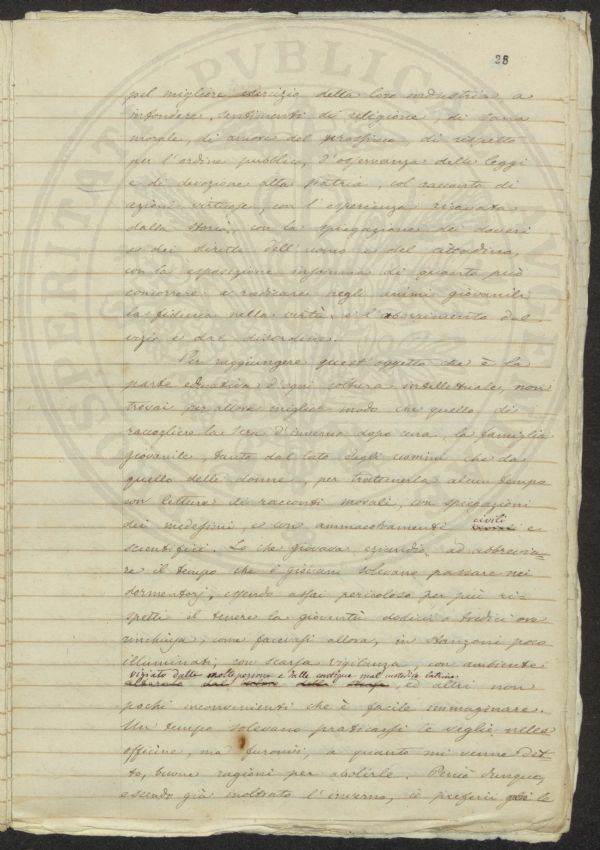 28
pel migliore esercizio della loro industria a
infondere sentimenti di religione, di sana
morale, di amore del prossimo, di rispetto
per l'ordine pubblico, d'osservanza delle leggi
e di devozione alla patria, col racconto di
azioni virtuose, con l'esperienza ricavata
dalla storia, con la spiegazione dei doveri
e dei diritti dell'uomo e del cittadino,
con la esposizione infomma di quanto può
concorrere a radicare negli animi giovanili
la fiducia nella virtù, e l'aborrimento del
vizio e del disordine.
Per raggiungere quest'oggetto che è la
parte educativa d'ogni coltura intellettuale, non
trovai per allora miglior modo che quello di
raccogliere la sera d'inverno dopo cena, la famiglia
giovanile, tanto dal lato degli uomini che da
quello delle donne, per trattenerla alcun tempo
con letture di racconti morali, con spiegazioni
dei medesimi e con ammaestramenti civili e
scientifici. Lo che giovava eziandio ad abbrevia-
re il tempo che i giovani solevano passare nei
dormentorj, essendo assai pericoloso per più ri-
spetti il tenere la gioventù dodici o tredici ore
rinchiusa, come facevasi allora, in stanzoni poco
illuminati, con scarsa vigilanza, con ambiente
viziato dalle molte persone e dalle contigue mal custodite latrine
ed altri non
pochi inconvenienti che è facile immaginare.
Un tempo solevano praticarsi le veglie nelle
officine, ma furonvi, a quanto mi venne det-
to, buone ragioni per abolirle. Perciò dunque,
essendo già inoltrato l'inverno, io preferii le